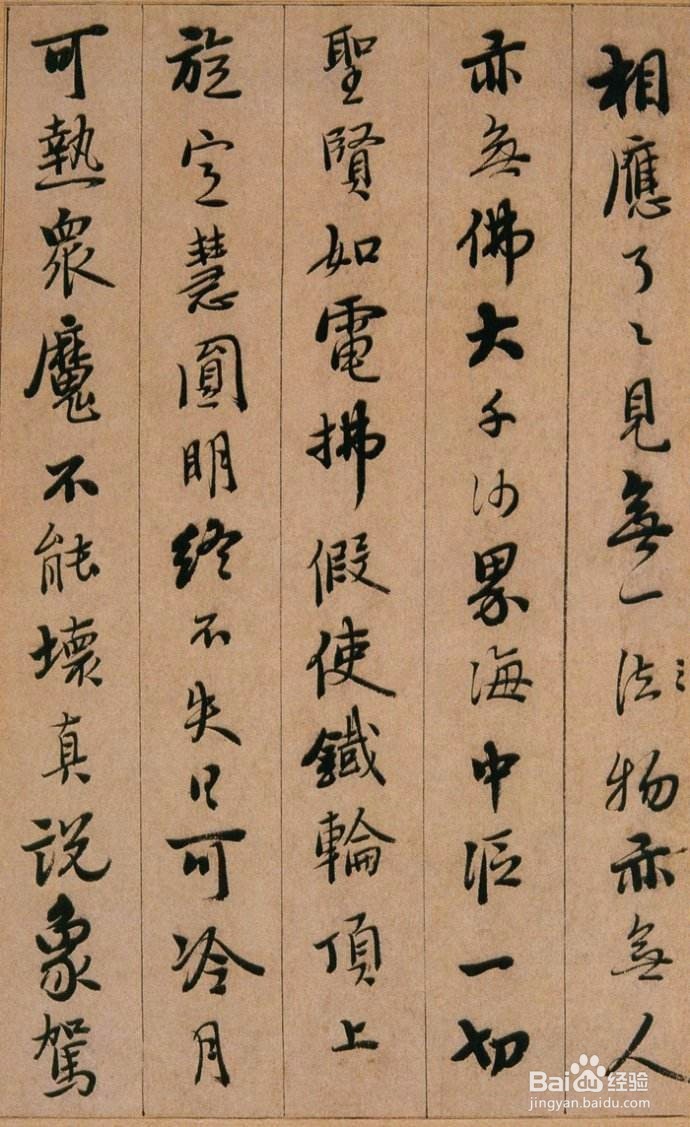 相應了〻見無一法物亦無人
亦無佛大千沙界海中漚一切
聖賢如電拂假使鐵輪頂上
旋定慧圓明終不失日可冷月
可熱眾魔不能壞真說象駕
Baidu经验
jingyan.baidu.com